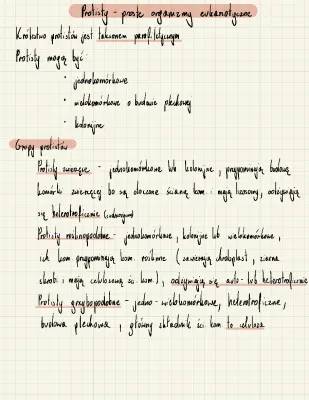 Protisty - proste organizmy eukariotyczne
Królestwo protistów jest taksonem parafiletycznym
Protisty mogą być:
• jednokomórkowe
• wielokomórkowe o budowie plechowej
• kolonijne
Grupy protistów
Protisty zwierzęce - jednokomórkowe lub kolonijne, przypominają budową
komórki zwierzęcej bo są otoczone ścianą kom. i mają lizosomy, odżywiają
się heterotroficznie (cudzożywne)
Protisty roślinopodobne - jednokomórkowe, kolonijne lub wielokomórkowe,
ich kom. przypominają kom. roślinne (zawierają chloroplast, ziarna
skrobi i mają celulozową ści. kom.), odżywiają się auto- lub heterotroficznie
Protisty grzybopodobne - jedno- wielokomórkowe, heterotroficzne,
budowa plechowa, główny składnik ści. kom to celuloza